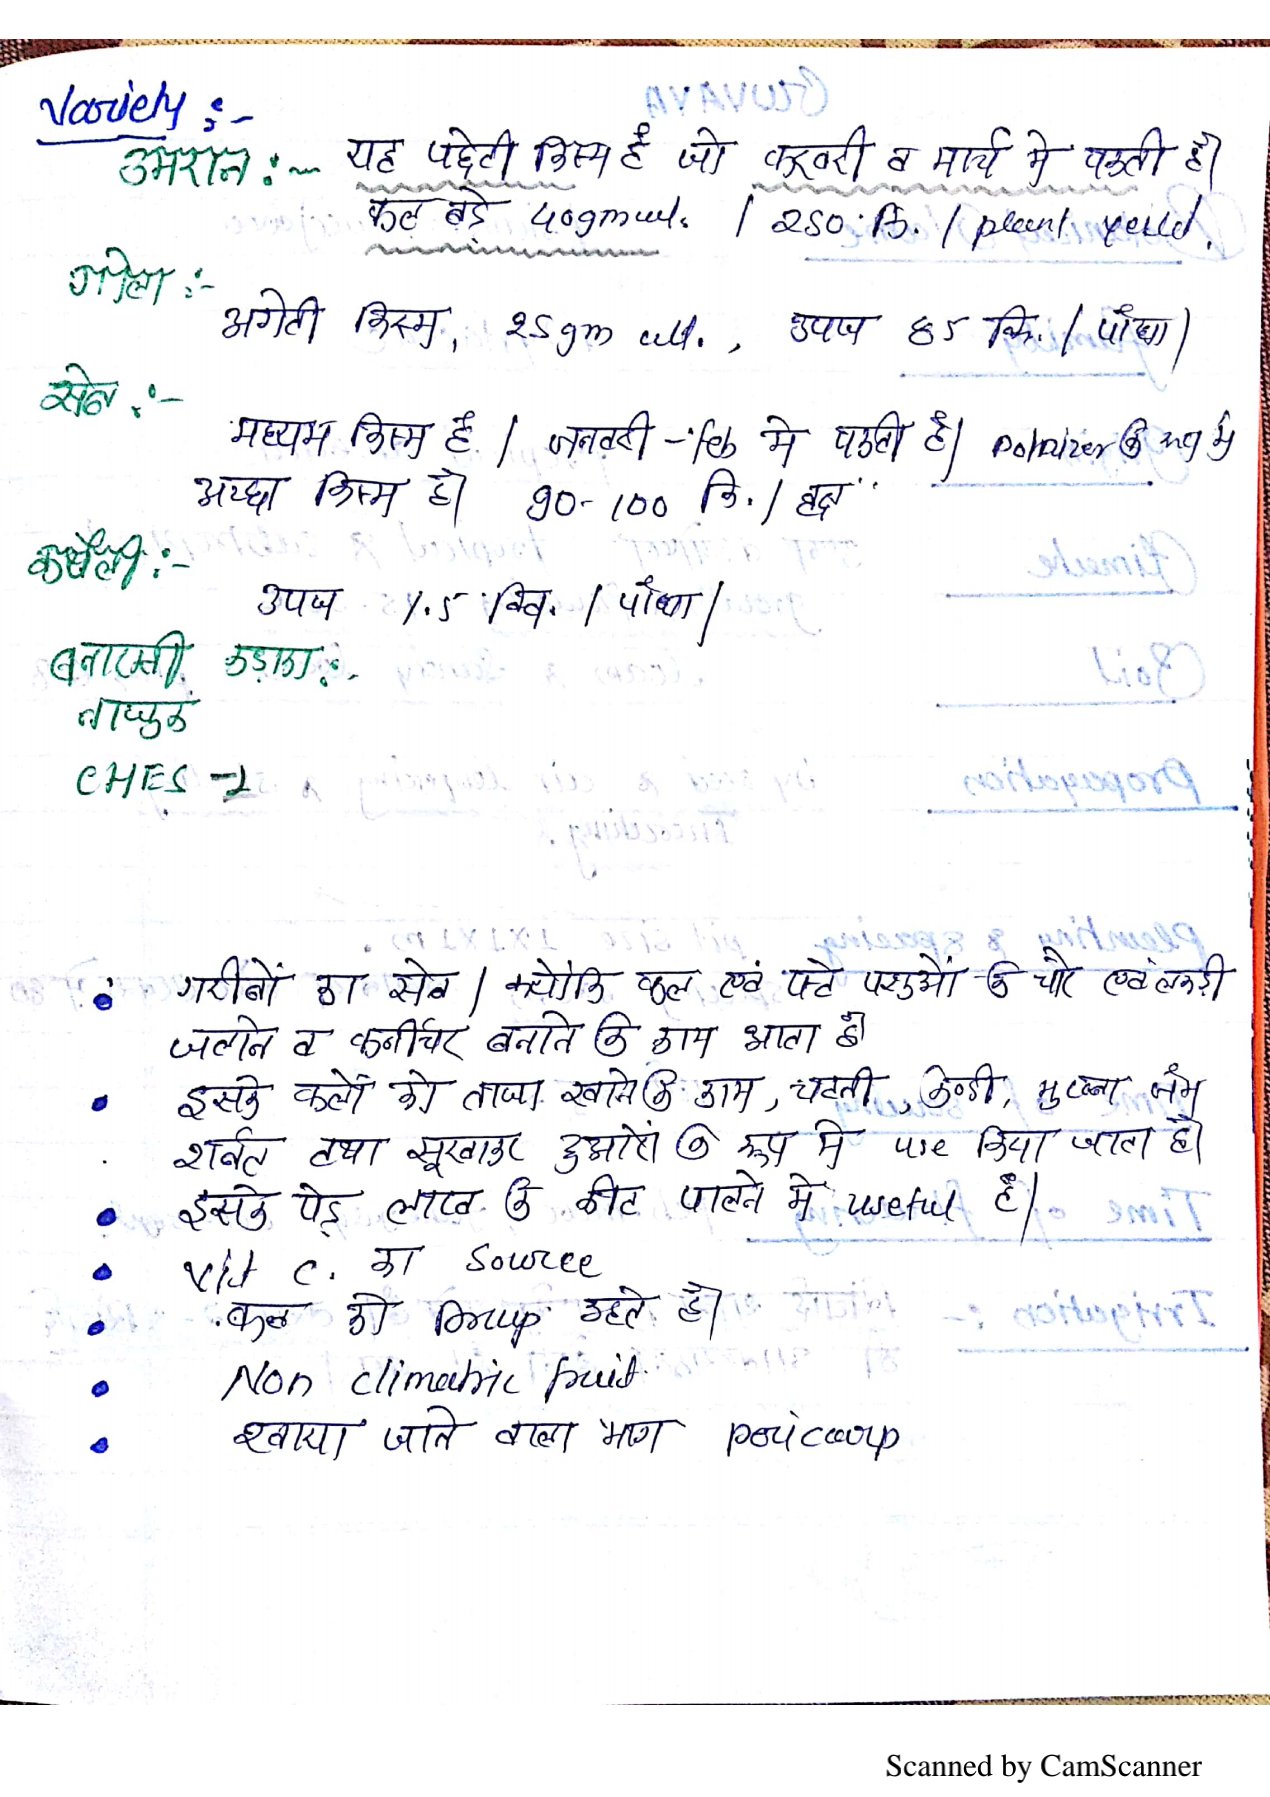 Variety :-
उमरान :- यह पछेती किस्म है जो फरवरी व मार्च मे पकती है।
फल बड़े 40gm wt. / 250 कि. / plant yeild.
गोला :-
अगेती किस्म, 25gm wt. , उपज 85 कि. / पौधा /
सेब :-
मध्यम किस्म है / जनवरी - feb मे पकती है / polnizer के रूप मे
अच्छा किस्म है। 90-100 कि. / वृक्ष
कथैली :-
उपज 1.5 क्वि. / पौधा /
बनारसी कड़ाका :-
नाजुक
CHES -1
गरीबों का सेब / क्योकि फल एवं पत्ते पशुओं के चारे एवं लकड़ी
जलाने व फर्नीचर बनाने के काम आता है।
इसके फलों को ताजा खाने के काम, चटनी, केण्डी, मुरब्बा जैम
शर्बत तथा सूखाकर छुआरों के रूप मे use किया जाता है।
इसके पेड़ लाख के कीट पालने मे useful है /
Vit C. का Source
फल को Drup कहते है।
Non climatric fruit.
खाया जाने वाला भाग pericarp
Scanned by CamScanner